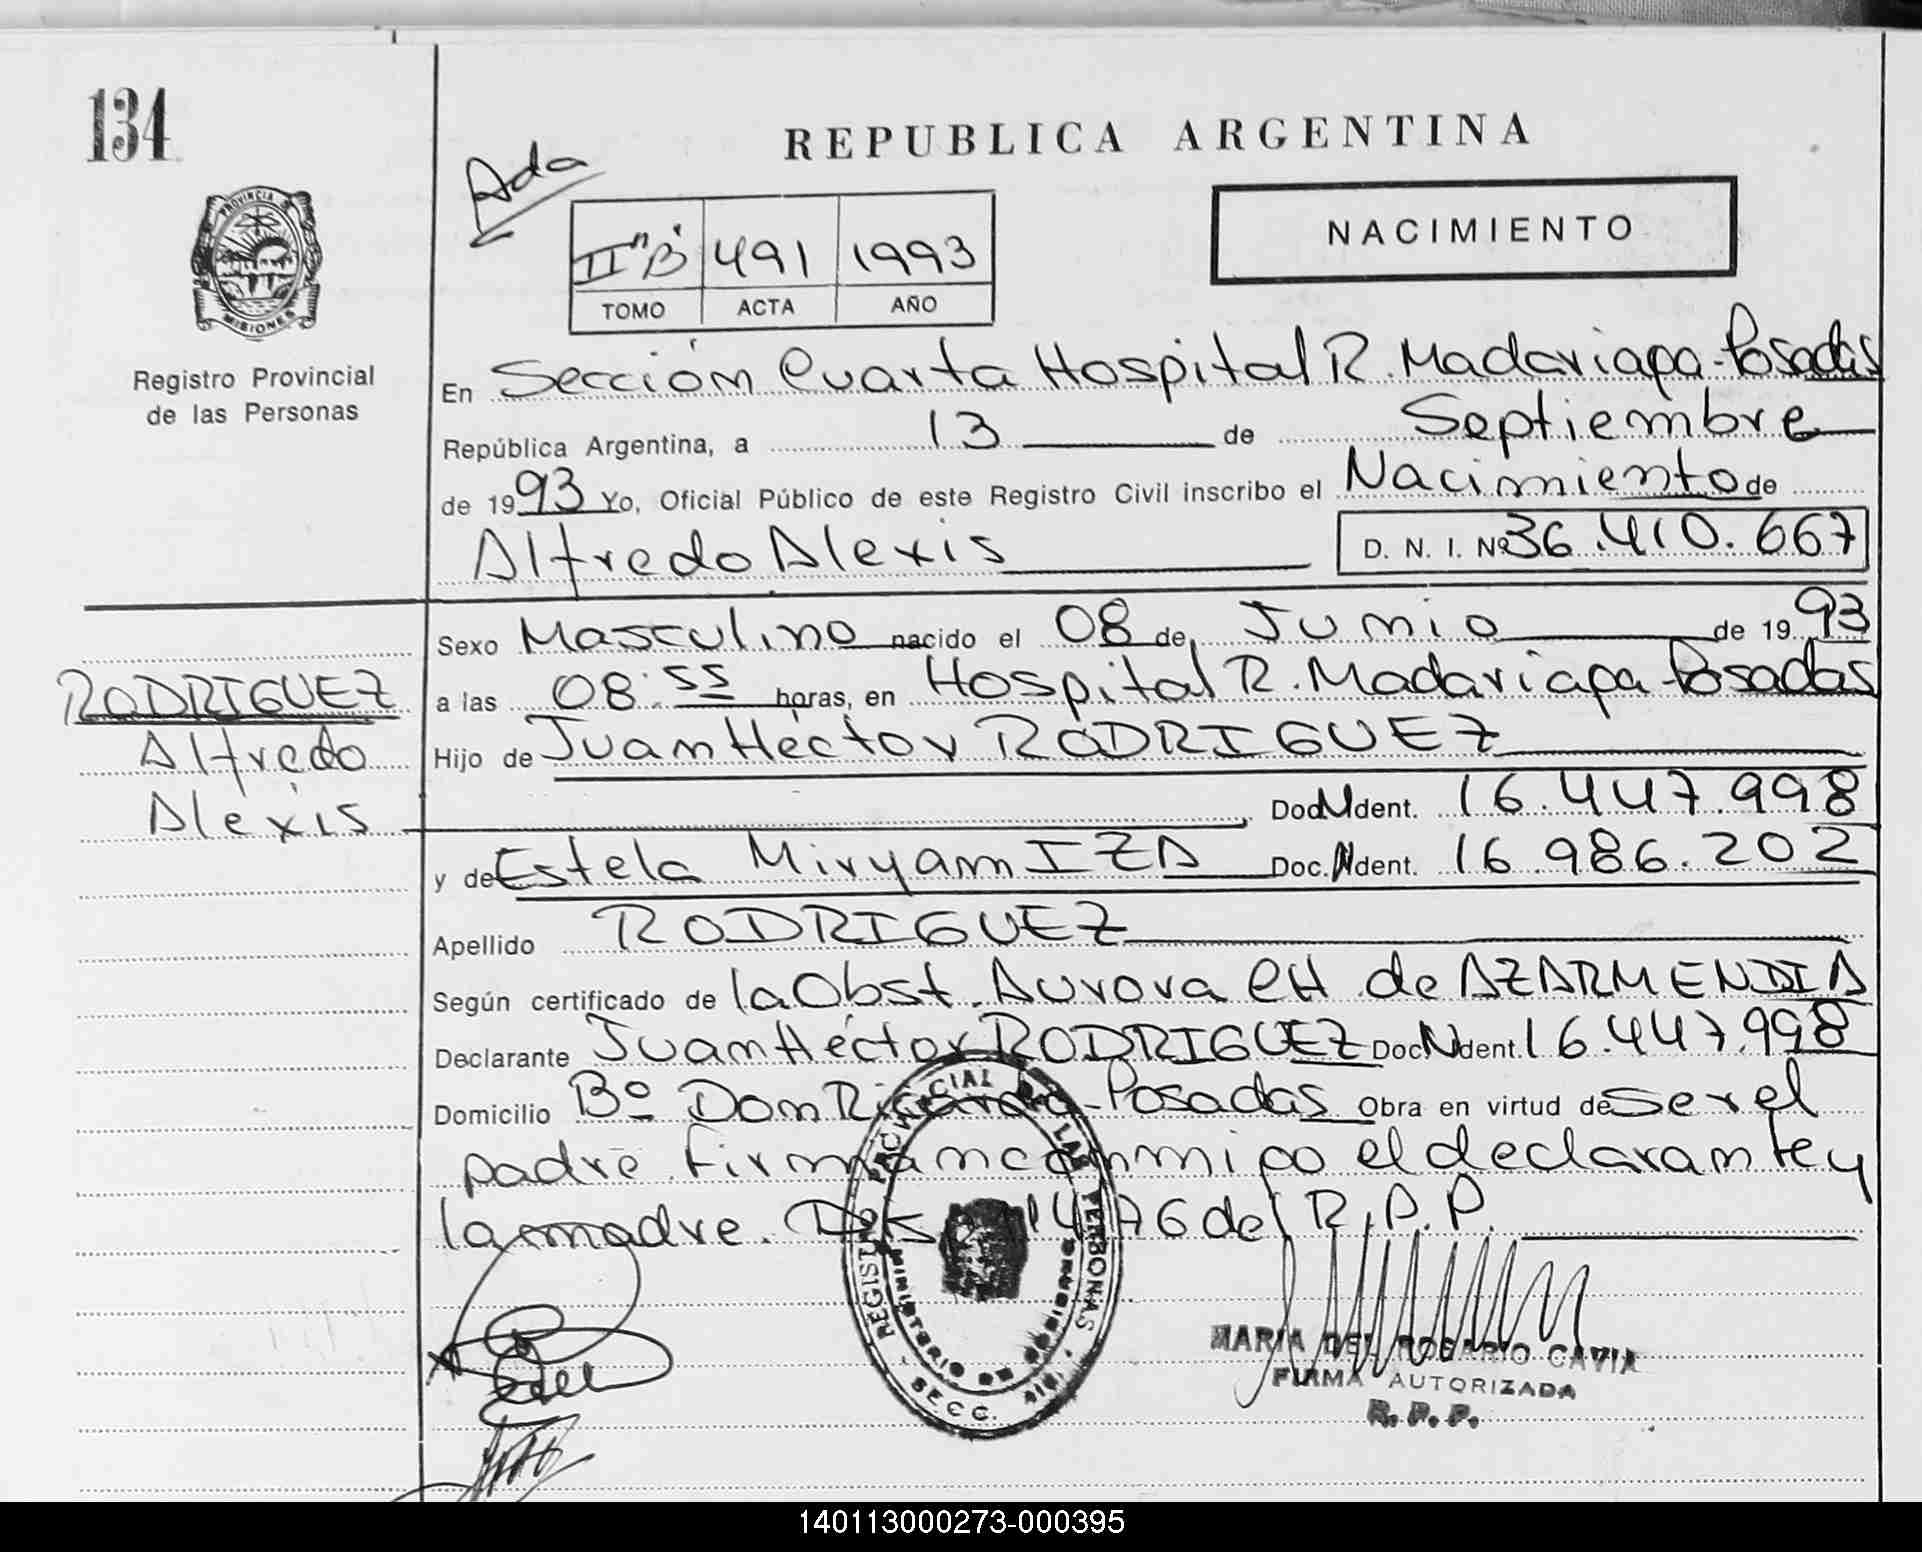 134
REPUBLICA ARGENTINA
Ada
NACIMIENTO
II "B" 491 1993
TOMO ACTA AÑO
PROVINCIA DE
MISIONES
Registro Provincial
de las Personas
En Sección Cuarta Hospital R. Madariaga-Posadas
República Argentina, a 13 de Septiembre
de 1993 Yo, Oficial Público de este Registro Civil inscribo el Nacimiento de
Alfredo Alexis D. N. I. Nº 36.410.667
Sexo Masculino nacido el 08 de Junio de 1993
RODRIGUEZ
Alfredo
Alexis
a las 08:55 horas, en Hospital R. Madariaga-Posadas
Hijo de Juan Héctor RODRIGUEZ
Doc. Ident. 16.447.998
y de Estela Miryam IZA Doc. Ident. 16.986.202
Apellido RODRIGUEZ
Según certificado de la Obst. Aurora CH de AZARMENDIA
Declarante Juan Héctor RODRIGUEZ Doc. Ident. 16.447.998
Domicilio Bº Don Ricardo-Posadas Obra en virtud de Ser el
padre. Firman conmigo el declarante y
la madre. 114/76 del R.P.P.
REGISTRO PROVINCIAL DE LAS PERSONAS
MINISTERIO DE GOBIERNO
SECC. 4ta.
MARIA DEL ROSARIO CAVIA
FIRMA AUTORIZADA
R. P. P.
140113000273-000395